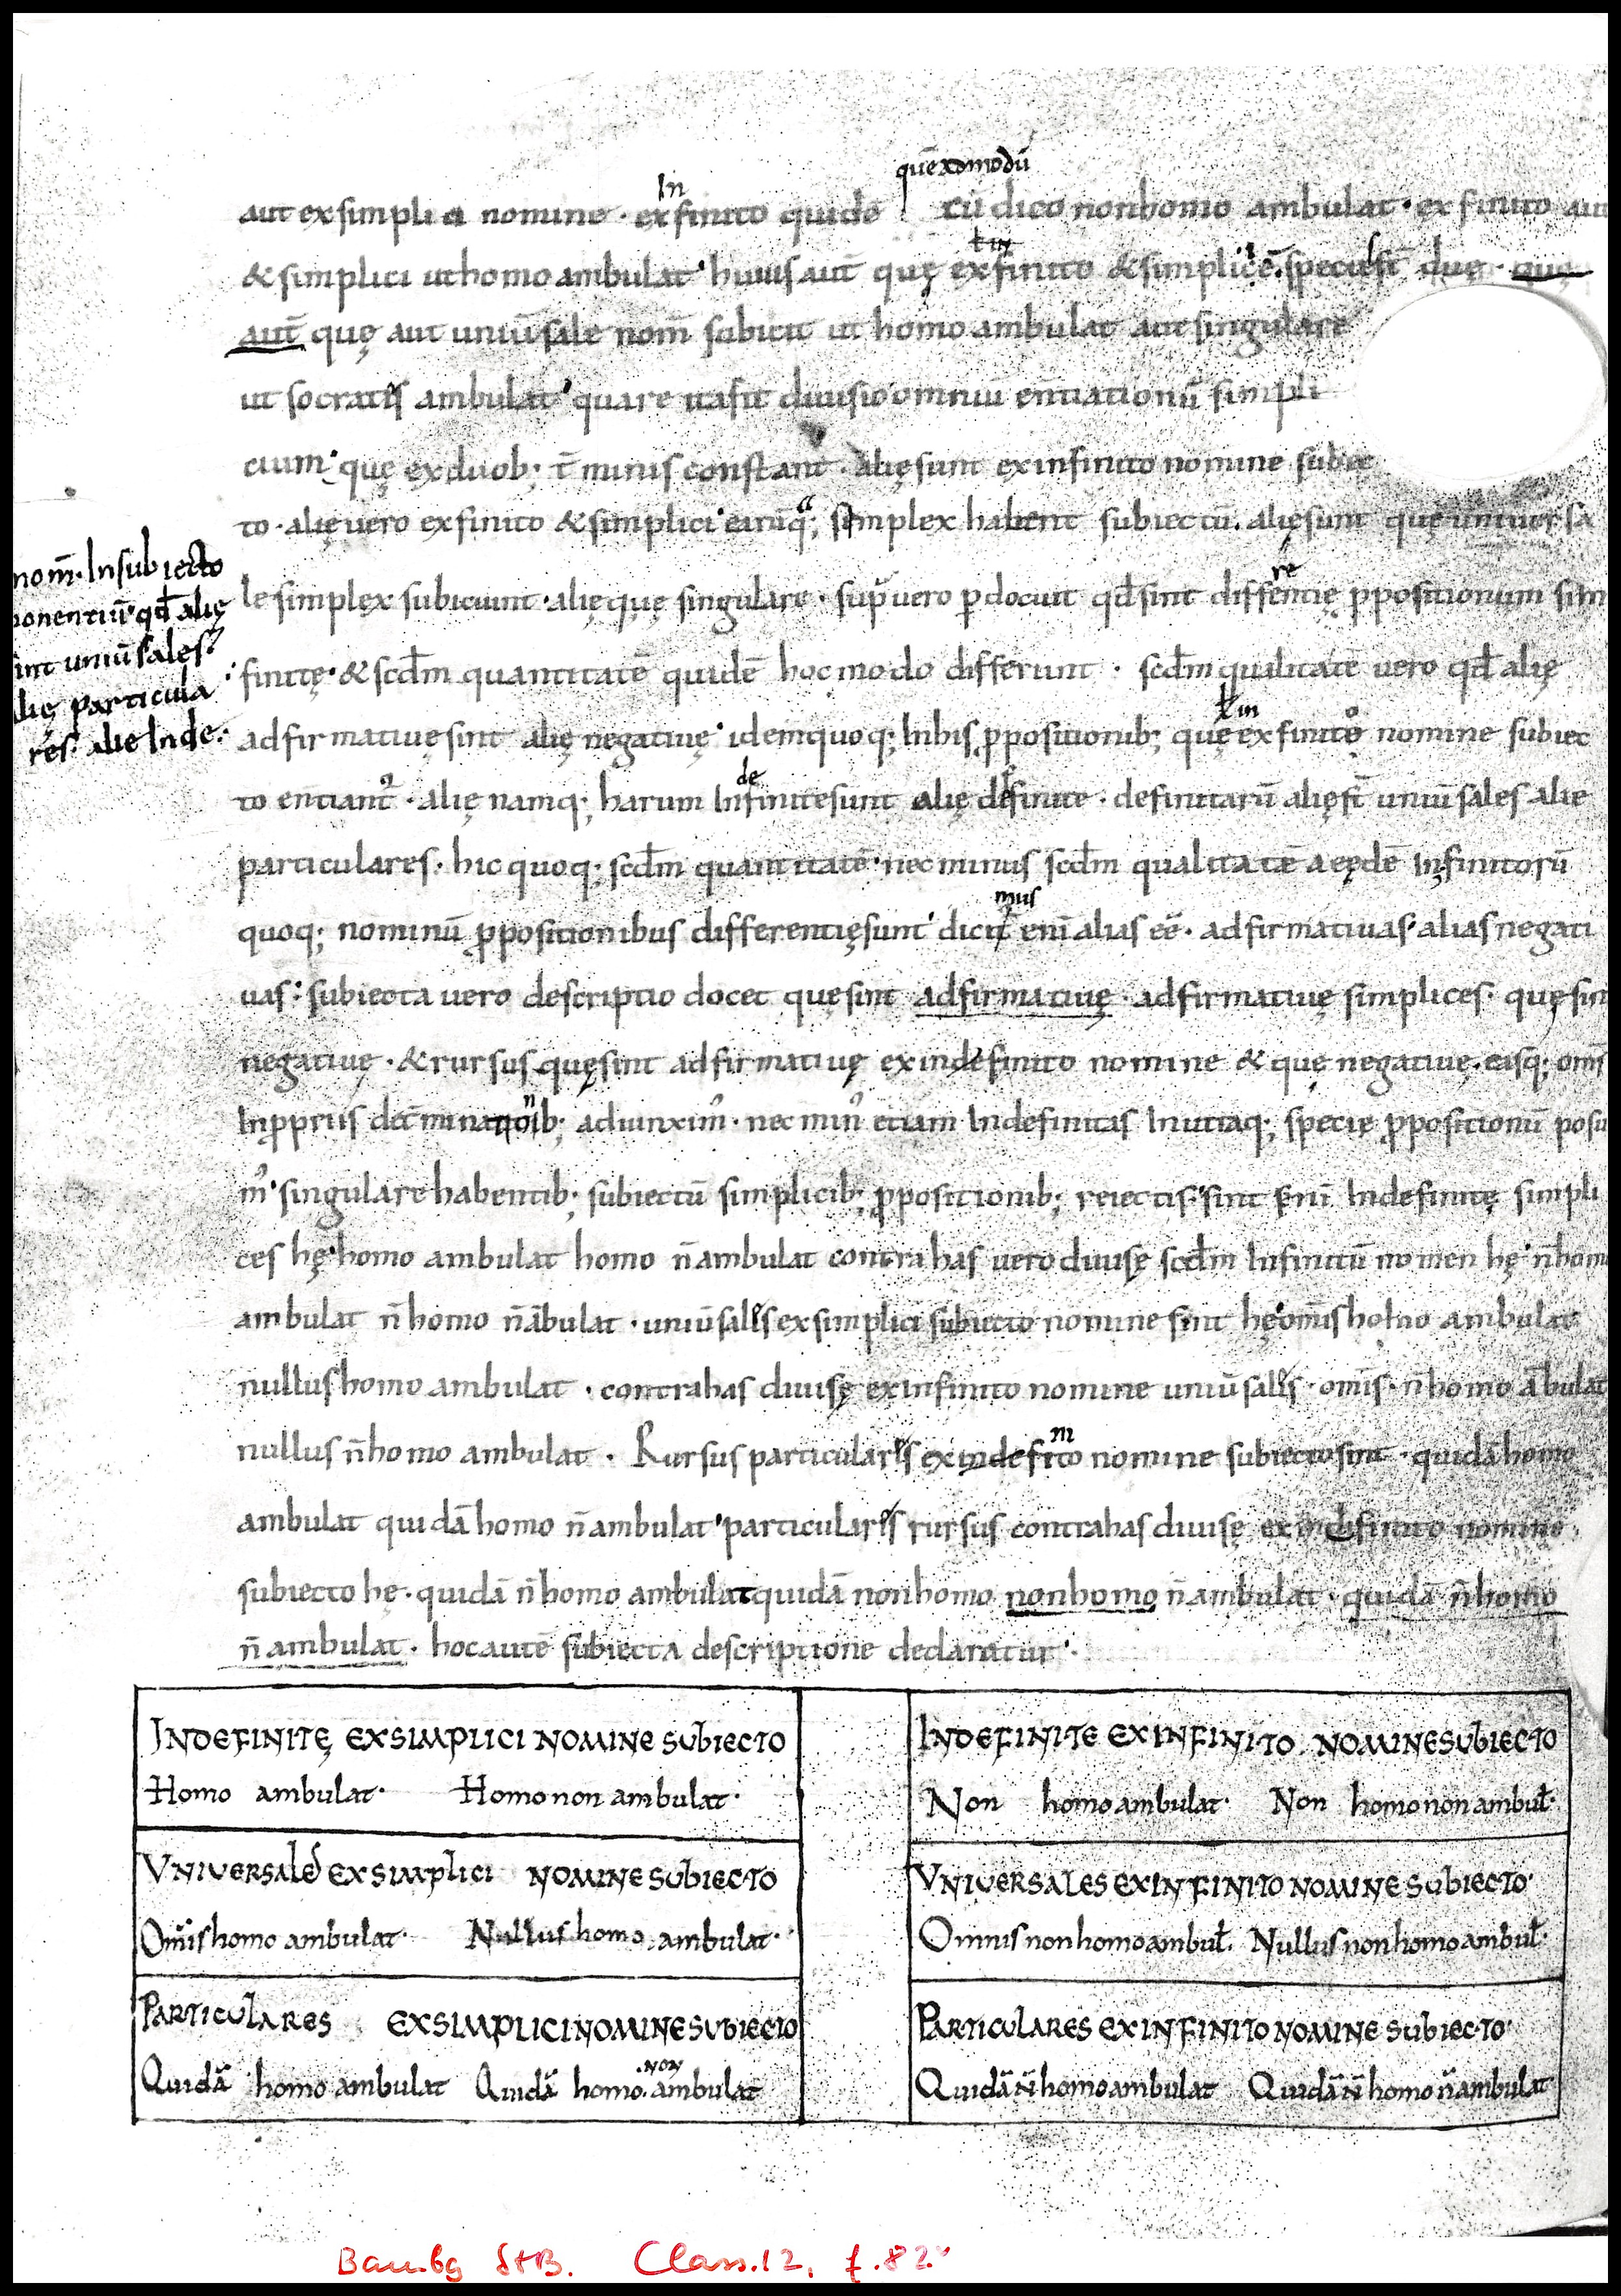 quēadmodū
In
aut exsimplici nomine · exfinito quidē cū dico nonhomo ambulat · ex finito aut
ł in
&simplici uthomo ambulat · huius aut̄ quę exfinito &simplici ē. species st̄ duę · quę
aut̄ quę aut uniūsale nom̄ subicit ut homo ambulat aut singulare
ut socratis ambulat · quare ita fit diuisio omniū enūtiationū simpli
cium · quę exduob; t̄minis constant · alię sunt exinfinito nomine subiec
to · alię vero exfinito &simplici · earūq; simplex habent subiectū. alię sunt quę uniuersa
re
le simplex subiciunt · alię quę singulare · sup̄ vero p docuit qd̄ sint diffentię ppositionum sim
nom̄ · In subiecto
ponentiū · qd̄ alię
sint uniūsales
alię particula
res · alie Inde:
:finitę · & scd̄m quantitatē quidē hoc modo differunt · scd̄m qualitatē vero qd̄ alię
ł in
adfirmatiuę sint alię negatiuę · idemquoq; Inhis ppositionib; quę exfinito nomine subiec
de
to entiant̄ · alię namq; harum Infinite sunt alię definite · definitarū alię st̄ uniūsales alie
particulares · hic quoq; scd̄m quantitatē · nec minus scd̄m qualitatē aeędē Infinitorū
mus
quoq; nominū ppositionibus differentię sunt · dicit enī alias eē · adfirmatiuas · alias negati
uas : subiecta vero descriptio docet quę sint adfirmatiuę · adfirmatiuę simplices · quę sint
negatiuę · & rursus quę sint adfirmatiuę exindefinito nomine & quę negatiuę · easq; om̄s
In propriis det̄minationib; adiunxim' · nec min' etiam Indefinitas In utraq; specię ppositionū posu
m' · singulare habentib; subiectū simplicib; ppositionib; reiectis · sint Indefinitę simpli
ces hę · homo ambulat homo n̄ ambulat contra has vero diuisę scd̄m Infinitū nomen hę · n̄ homo
ambulat n̄ homo n̄ ābulat · uniūsales exsimplici subiecto nomine sint hę · om̄is homo ambulat
nullus homo ambulat · contra has diuisę exinfinito nomine uniūsales · om̄is · n̄ homo ābulat
nullus n̄ homo ambulat · Rursus particulares exindefinito nomine subiecto sint · quidā homo
ambulat quidā homo n̄ ambulat · particulares rursus contra has diuisę exindefinito nomine
subiecto hę · quidā n̄ homo ambulat quidā nonhomo nonhomo n̄ ambulat · quidā n̄ homo
n̄ ambulat · hoc autē subiecta descriptione declaratur ·
INDEFINITĘ EXSIMPLICI NOMINE SUBIECTO
Homo ambulat · Homo non ambulat ·
INDEFINITE EXINFINITO NOMINE SUBIECTO
Non homo ambulat · Non homo non ambul̄ ·
VNIVERSALES EXSIMPLICI NOMINE SUBIECTO
Om̄is homo ambulat · Nullus homo ambulat ·
VNIVERSALES EXINFINITO NOMINE SUBIECTO ·
Omnis non homo ambul̄ · Nullus non homo ambul̄ ·
PARTICULARES EXSIMPLICI NOMINE SUBIECTO
Quidā homo ambulat Quidā homo · NON ambulat
PARTICULARES EXINFINITO NOMINE SUBIECTO ·
Quidā n̄ homo ambulat Quidā n̄ homo n̄ ambulat
Bambg StB. Class. 12, f. 82v